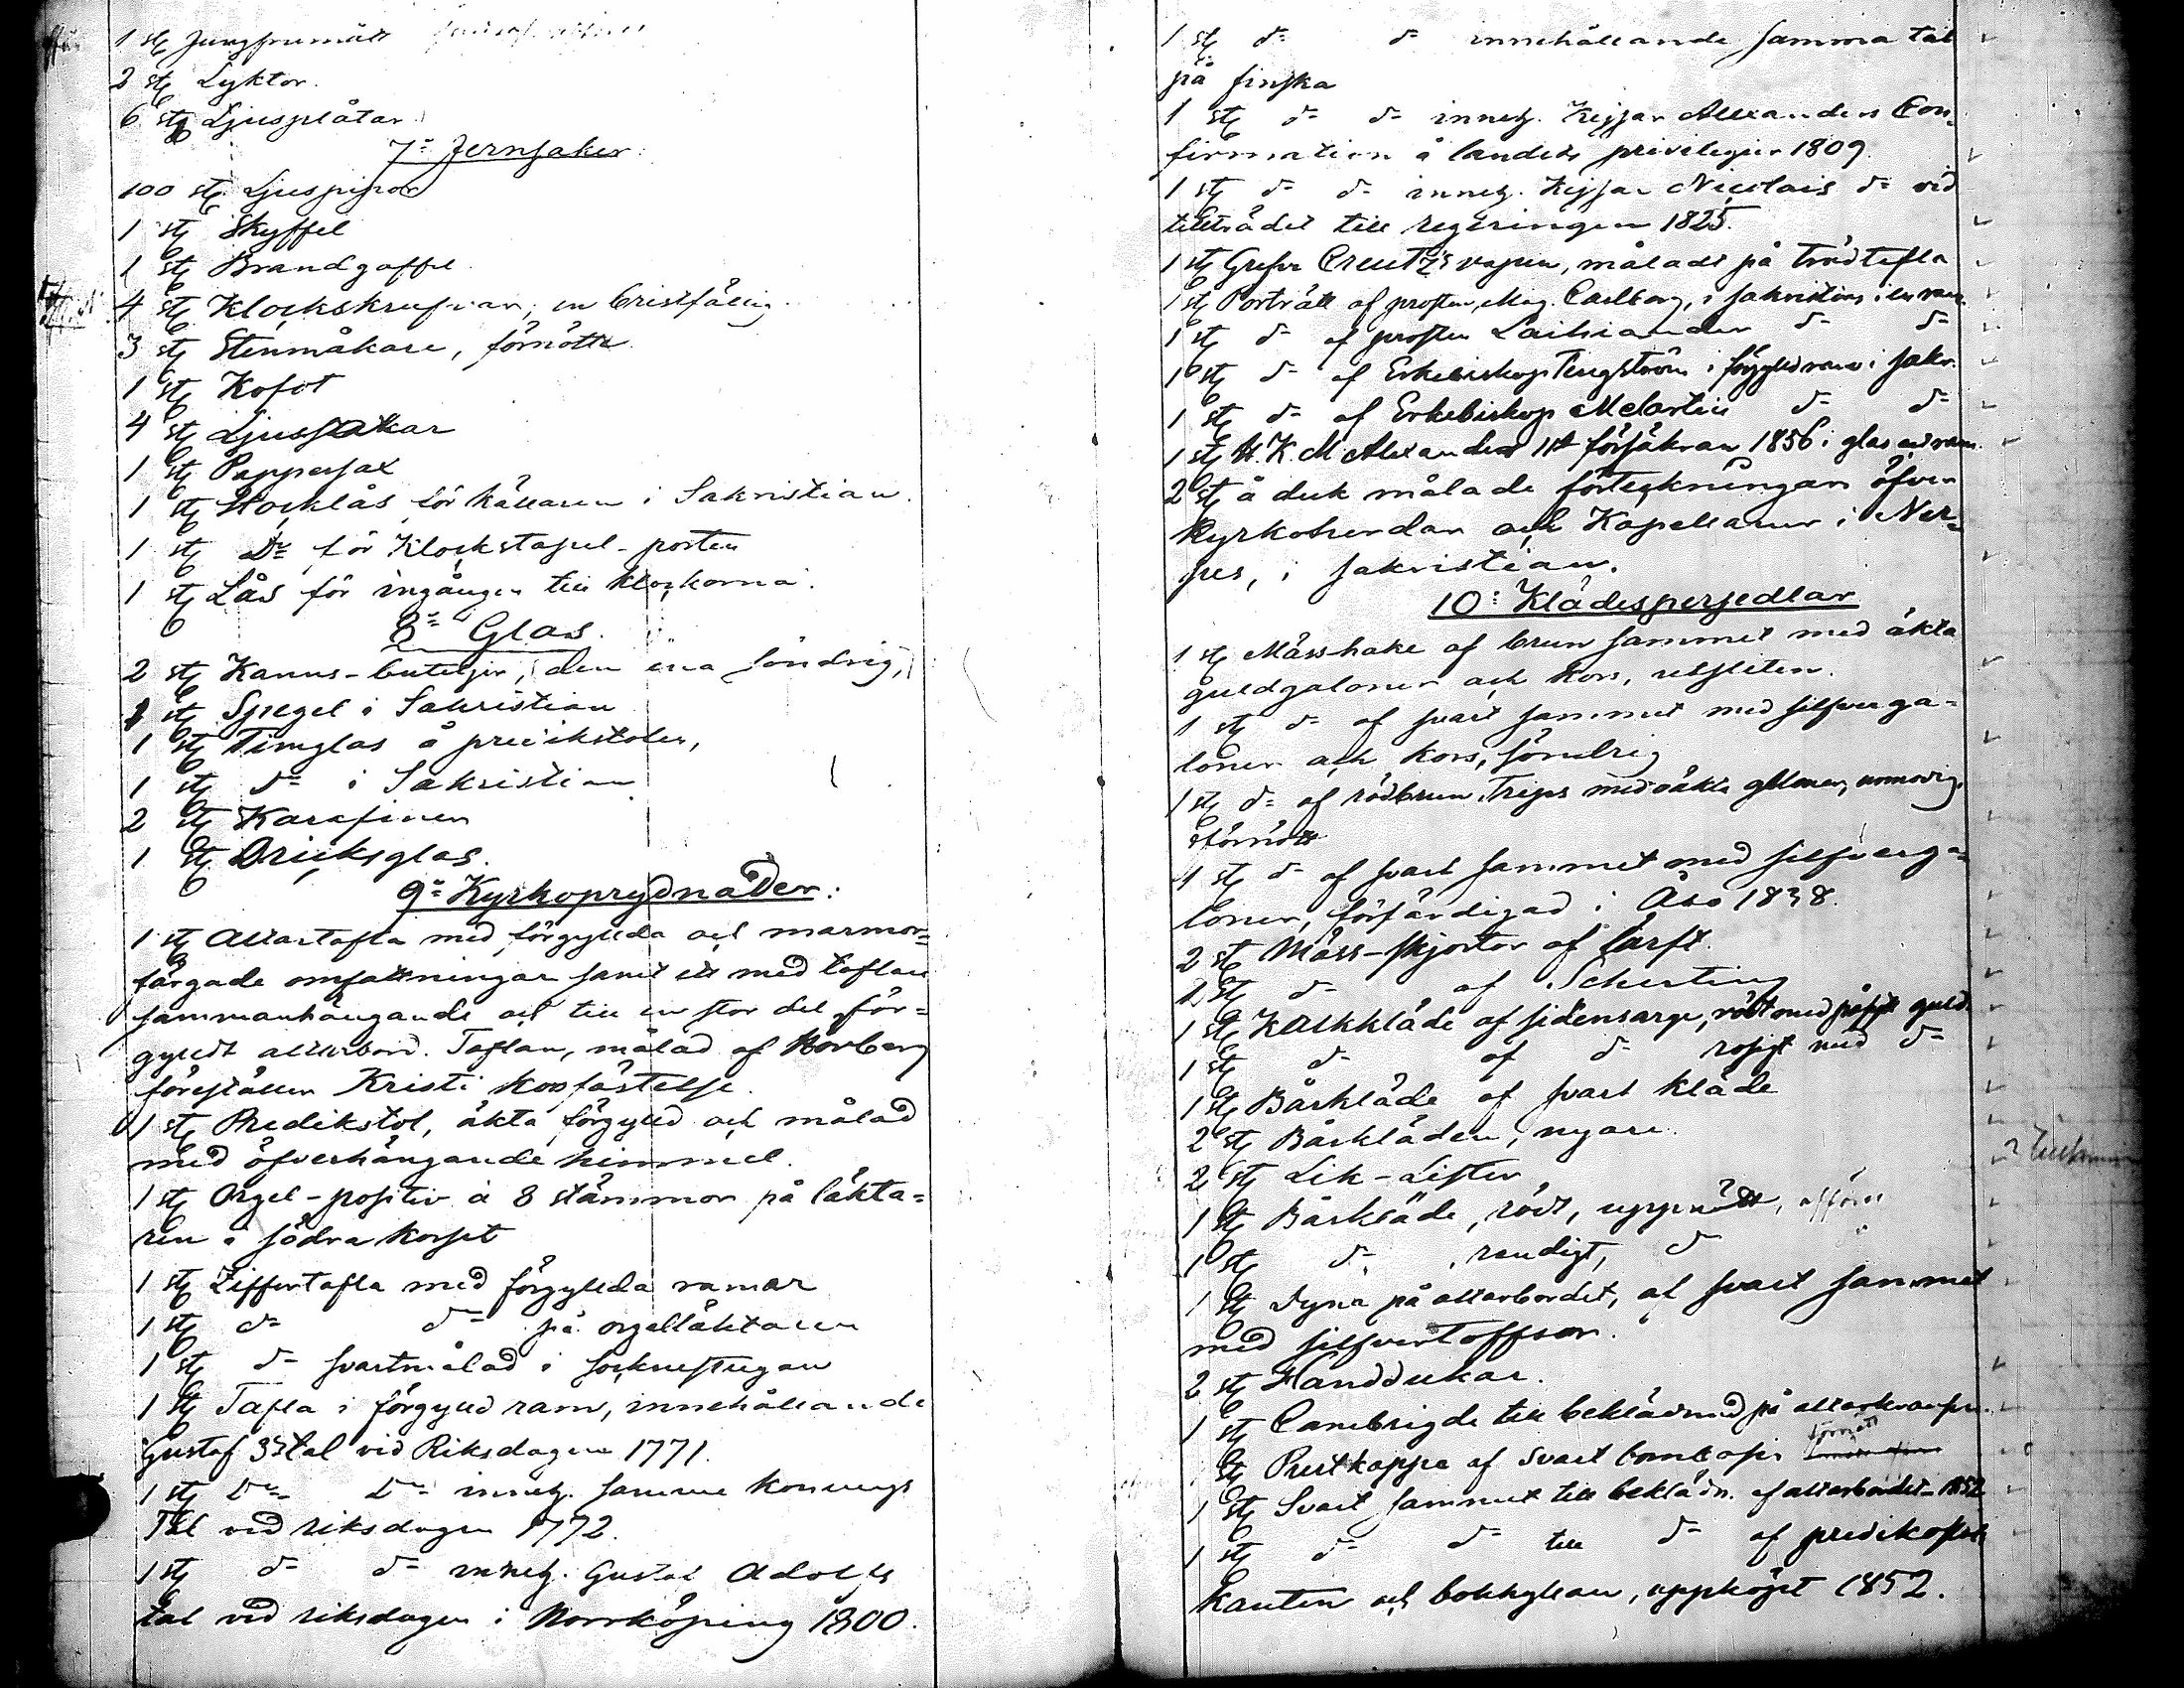 1 st Jungfrumått
2 st Lyktor.
6 st Ljusplåtar.
7:= Jernsaker:
100 st Ljuspipor
1 st Skyffel
1 st Brandgaffel
4 st Klockskrufvar, en bristfällig
3 st Stenmåkare, förnötta
1 st Kofot
4 st Ljussaxar
1 st Pappersax
1 st Stocklås för källaren i Sakristian.
1 st D:o för Klockstapel-porten
1 st Lås för ingången till klockorna.
8:= Glas.
2 st Kanns-buteljer, (den ena söndrig,)
1 st Spegel i Sakristian
1 st Timglas å predikstolen,
1 st d:o i Sakristian
2 st Karafiner
1 st Dricksglas.
9:= Kyrkoprydnader:
1 st Altartafla med förgyllda och marmor=
färgade omfattningar samt ett med taflan
sammanhängande och till en stor del för=
gyldt altarbord. Taflan, målad af
föreställer Kristi korsfästelse.
1 st Predikstol, äkta förgylld och målad
med öfverhängande himmel.
1 st Orgel-positiv à 8 stämmor på läkta=
ren i södra korset
1 st Ziffertafla med förgyllda ramar
1 st d:o d:o på orgelläktaren
1 st d:o svartmålad i sockenstugan
1 st Tafla i förgylld ram, innehållande
Gustaf 3:s tal vid Riksdagen 1771.
1 st D:o D:o inneh. samme konungs
Tal vid riksdagen 1772.
1 st d:o d:o inneh. Gustaf Adolfs
tal vid riksdagen i Norrköping 1800.
1 st d:o d:o innehållande samma tal
på finska
1 st d:o d:o inneh. Kejsar Alexanders Con=
firmation å landets privilegier 1809.
1 st d:o d:o inneh. Kejsar Nicolais d:o vid
tillträdet till regeringen 1825.
1 st Grefve Creutz's vapen, målade på trädtafla
1 st Porträtt af prosten, Mag. Carlborg, i sakristian i en ram.
1 st d:o af prosten d:o d:o
1 st d:o af Erkebiskop Tengström i förgylld ram i sakr.
1 st d:o af Erkebiskop Melartin d:o d:o
1 st H.K.M Alexander II:s försäkran 1856 i glas och ram.
2 st å duk målade förteckningar öfver
Kyrkoherdar och Kapellaner i När=
pes, i sakristian.
10: Klädespersedlar
1 st Mässhake af brun sammet med äkta
guldgaloner och kors, utsliten.
1 st d:o af svart sammet med silfverga=
loner och kors, söndrig
1 st d:o af rödbrun Trips med oäkta galoner, omodig.
förnött
1 st d:o af svart sammet med silfverga=
loner, förfärdigad i Åbo 1838.
2 st Mäss-skjortor af lärft.
1 st d:o af Scherting
1 st Kalkkläde af sidensarge, rödt med påsydt guld.
1 st d:o af d:o rosigt med d:o
1 st Bårkläde af svart kläde
2 st Bårkläden, nyare.
2 st Lik-Lister
1 st Bårkläde, rödt, uppnött,
1 st d:o, randigt, d:o
1 st Dyna på altarbordet, af svart sammet
med silfvertoffsar.
2 st Handdukar.
1 st Cambrigde till beklädnad på
st Prestkappa af svart förnött
1 st Svart sammet till beklädn. af altarbordet 1852
1 st d:o d:o till d:o af predikostols
kanten och bokhyllan, uppköpt 1852.